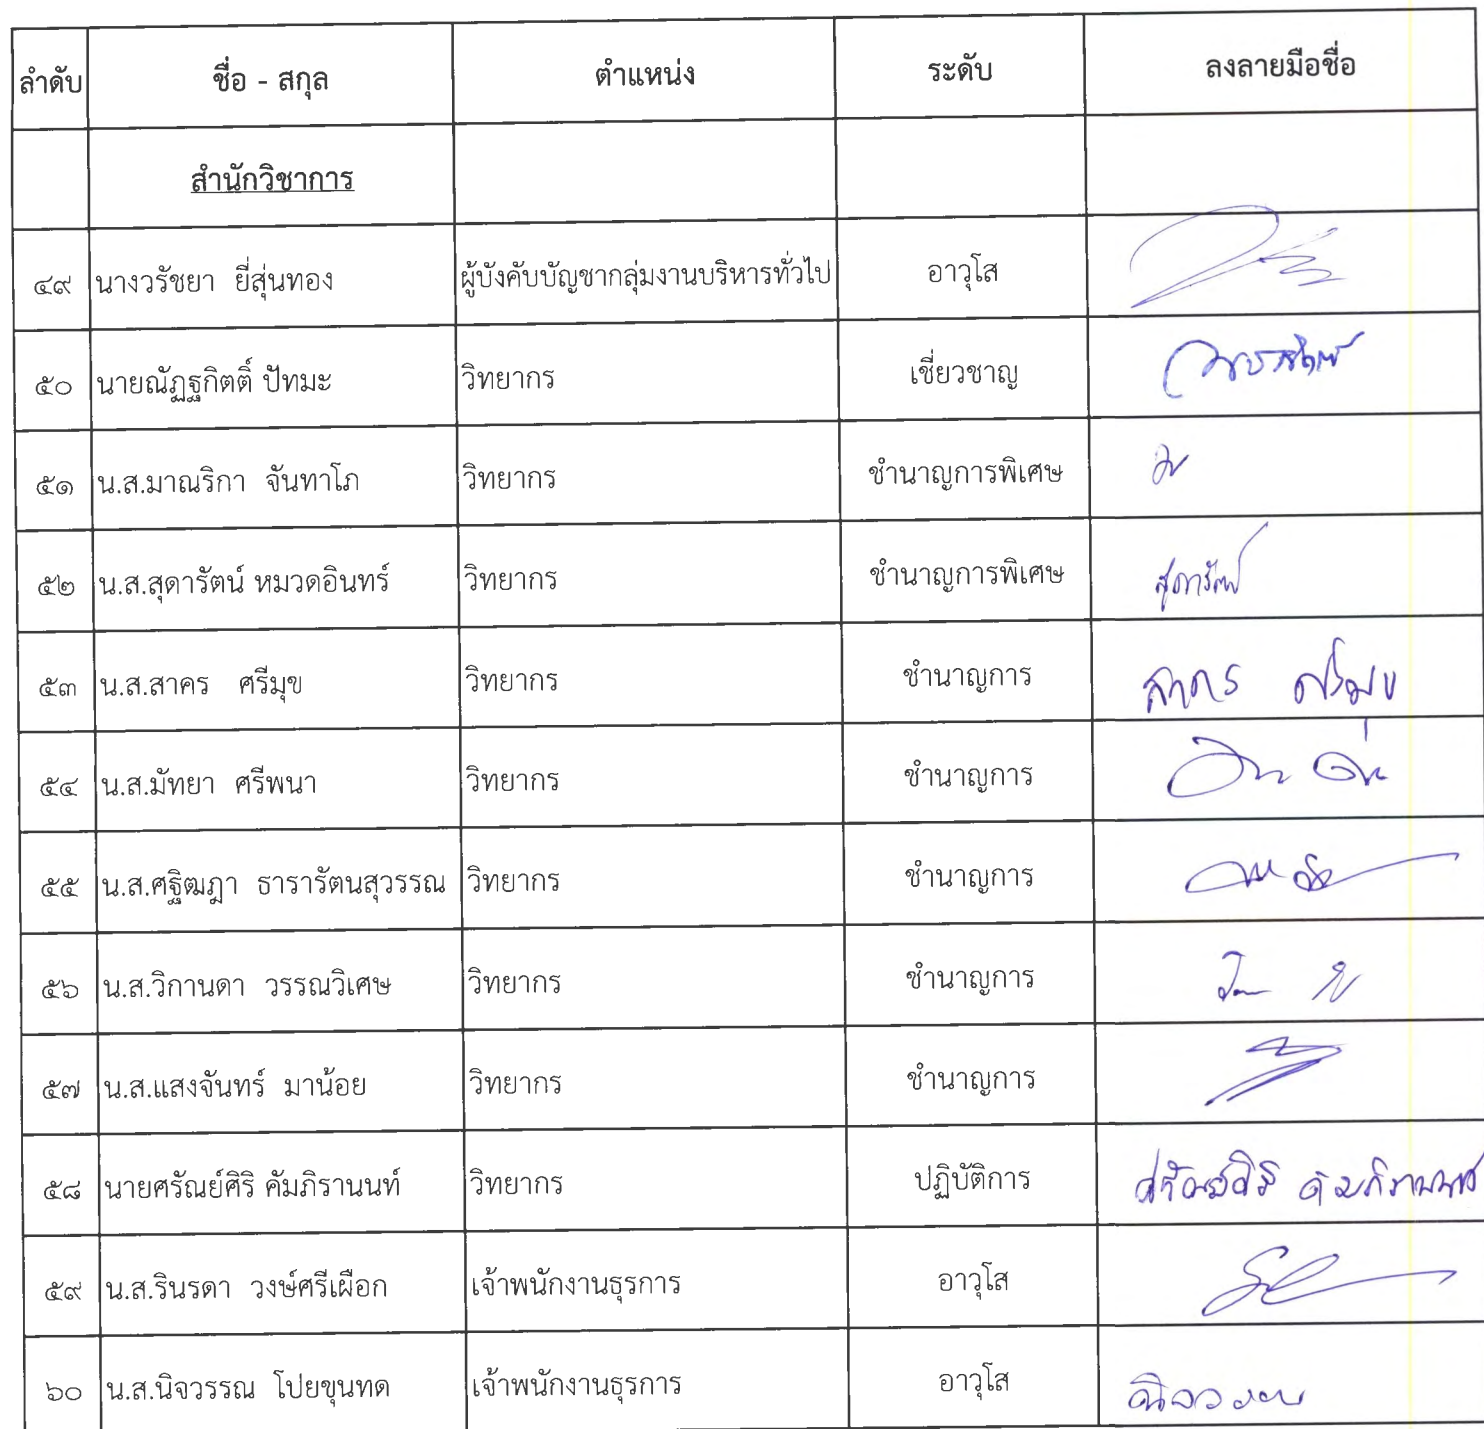 ลำดับ ชื่อ - สกุล ตำแหน่ง ระดับ ลงลายมือชื่อ
สำนักวิชาการ
๔๙ นางวรัชยา ยี่สุ่นทอง ผู้บังคับบัญชากลุ่มงานบริหารทั่วไป อาวุโส
๕๐ นายณัฏฐกิตติ์ ปัทมะ วิทยากร เชี่ยวชาญ
๕๑ น.ส.มาณริกา จันทาโภ วิทยากร ชำนาญการพิเศษ
๕๒ น.ส.สุดารัตน์ หมวดอินทร์ วิทยากร ชำนาญการพิเศษ สุดารัตน์
๕๓ น.ส.สาคร ศรีมุข วิทยากร ชำนาญการ สาคร ศรีมุข
๕๔ น.ส.มัทยา ศรีพนา วิทยากร ชำนาญการ
๕๕ น.ส.ศฐิฒฎา ธารารัตนสุวรรณ วิทยากร ชำนาญการ
๕๖ น.ส.วิกานดา วรรณวิเศษ วิทยากร ชำนาญการ
๕๗ น.ส.แสงจันทร์ มาน้อย วิทยากร ชำนาญการ
๕๘ นายศรัณย์ศิริ คัมภิรานนท์ วิทยากร ปฏิบัติการ ศรัณย์ศิริ คัมภิรานนท์
๕๙ น.ส.รินรดา วงษ์ศรีเผือก เจ้าพนักงานธุรการ อาวุโส
๖๐ น.ส.นิจวรรณ โปยขุนทด เจ้าพนักงานธุรการ อาวุโส นิจวรรณ